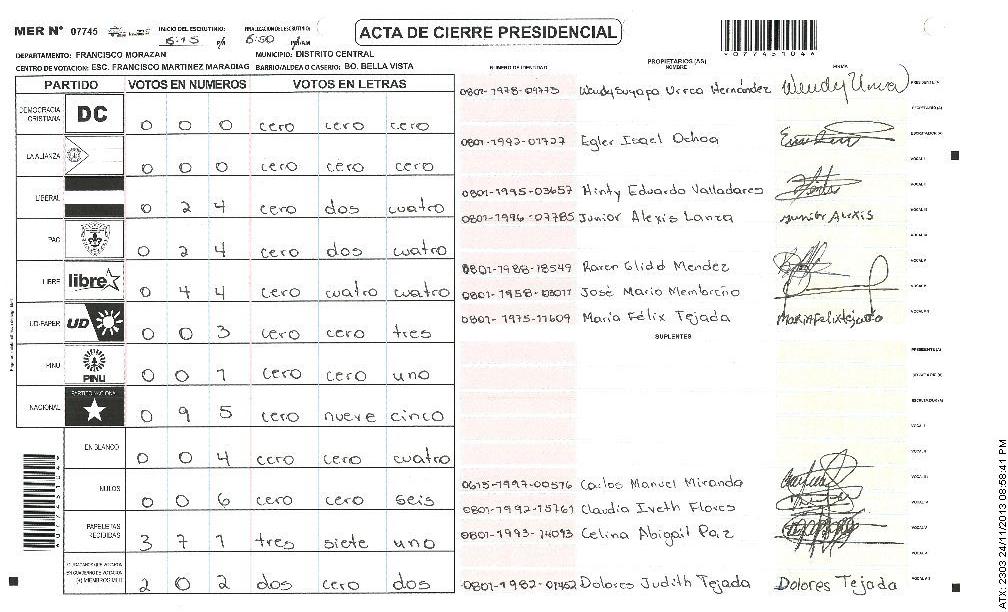 MER Nº 07745 INICIO DEL ESCRUTINIO: 5:15 P/M FINALIZACION DEL ESCRUTINIO: 6:50
ACTA DE CIERRE PRESIDENCIAL
DEPARTAMENTO: FRANCISCO MORAZAN MUNICIPIO: DISTRITO CENTRAL
CENTRO DE VOTACION: ESC. FRANCISCO MARTINEZ MARADIAG BARRIO/ALDEA O CASERIO: BO. BELLA VISTA
PARTIDO VOTOS EN NUMEROS VOTOS EN LETRAS
DEMOCRACIA CRISTIANA DC 0 0 0 cero cero cero
LA ALIANZA 0 0 0 cero cero cero
LIBERAL 0 2 4 cero dos cuatro
PAC 0 2 4 cero dos cuatro
LIBRE libre 0 4 4 cero cuatro cuatro
UD-FAPER UD 0 0 3 cero cero tres
PINU PINU 0 0 1 cero cero uno
NACIONAL PARTIDO NACIONAL 0 9 5 cero nueve cinco
EN BLANCO 0 0 4 cero cero cuatro
NULOS 0 0 6 cero cero seis
PAPELETAS RECIBIDAS 3 7 1 tres siete uno
CIUDADANOS QUE VOTARON EN CUADERNO DE VOTACION (+) MIEMBROS MER 2 0 2 dos cero dos
NUMERO DE IDENTIDAD PROPIETARIOS (AS) NOMBRE FIRMA
Wendy Suyapa Urrea Hernández Wendy Urrea
0801-1992-01727 Egler Isael Ochoa
0801-1995-03657 Hinty Eduardo Valladares
0801-1996-07785 Junior Alexis Lanza Junior Alexis
0801-1988-18549 Karen Glidd Mendez
José Mario Membreño
0801-1975-11609 María Félix Tejada Maria Felix tejada
SUPLENTES
0615-1997-00576 Carlos Manuel Miranda
0801-1992-15761 Claudia Iveth Flores
0801-1993-14093 Celina Abigail Paz
Dolores Judith Tejada Dolores Tejada
ATX: 2303 24/11/2013 08:58:41 PM